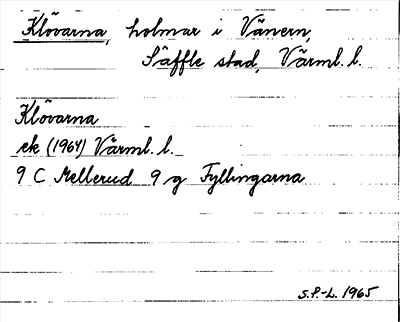 Klövarna, holmar i Vänern,
Säffle stad, Värml. l.
Klövarna
ek (1964) Värml. l.
9 C Mellerud 9 g Fyllingarna
S.P.-L. 1965